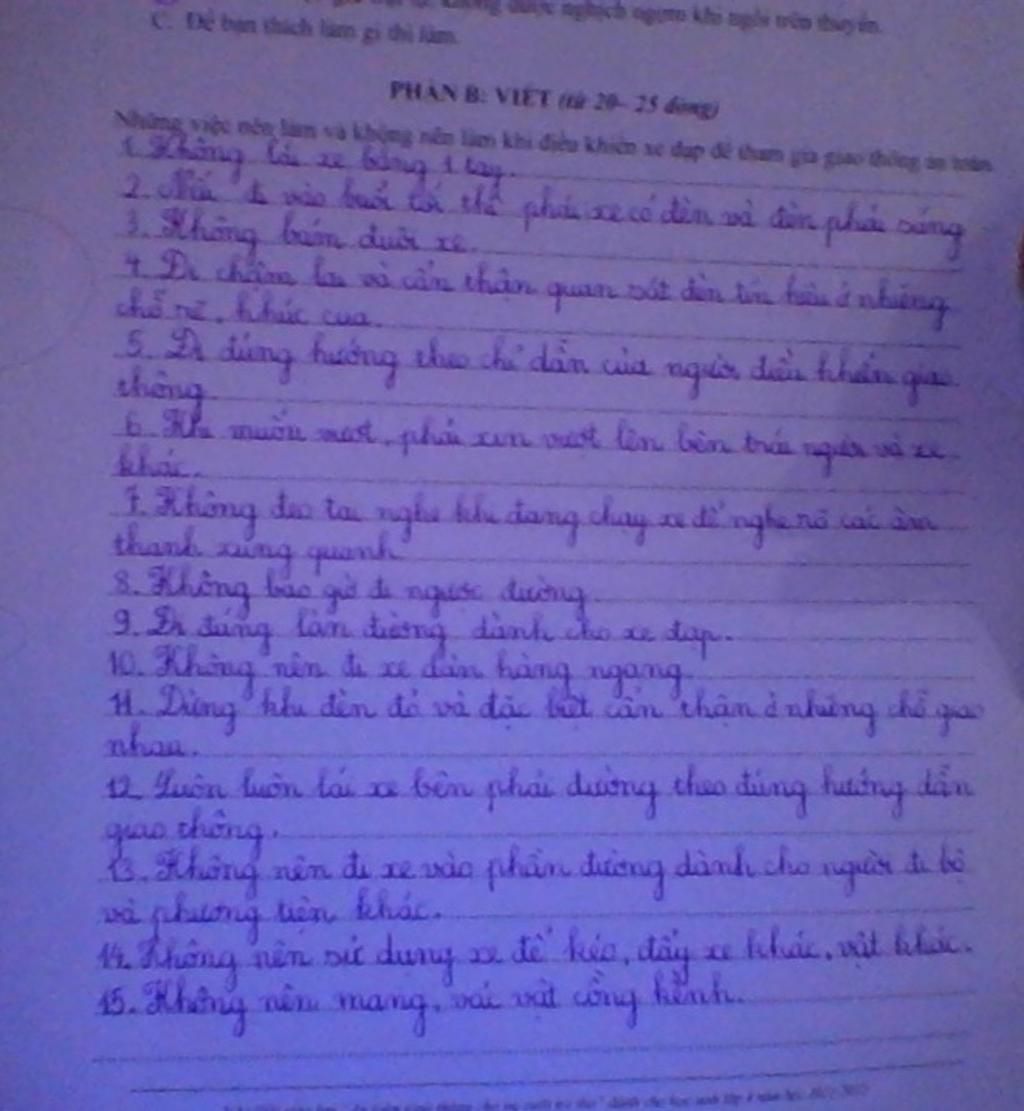 không được nghịch ngợm khi ngồi trên thuyền.
C. Để bạn thích làm gì thì làm.
PHẦN B: VIẾT (từ 20– 25 dòng)
Những việc nên làm và không nên làm khi điều khiển xe đạp để tham gia giao thông an toàn
1. Không lái xe bằng 1 tay.
2. Nếu đi vào buổi tối thì phải xe có đèn và đèn phải sáng
3. Không bám đuôi xe.
4. Đi chậm lại và cẩn thận quan sát đèn tín hiệu ở những
chỗ rẽ, khúc cua.
5. Đi đúng hướng theo chỉ dẫn của người điều khiển giao
thông
6. Khi muốn vượt, phải xin vượt lên bên trái người và xe
khác.
7. Không đeo tai nghe khi đang chạy xe để nghe rõ các âm
thanh xung quanh
8. Không bao giờ đi ngược đường
9. Đi đúng làn đường dành cho xe đạp.
10. Không nên đi xe dàn hàng ngang
11. Dừng khi đèn đỏ và đặc biệt cẩn thận ở những chỗ giao
nhau.
12. Luôn luôn lái xe bên phải đường theo đúng hướng dẫn
giao thông.
13. Không nên đi xe vào phần đường dành cho người đi bộ
và phương tiện khác.
14. Không nên sử dụng xe để kéo, đẩy xe khác, vật khác.
15. Không nên mang, vác vật cồng kềnh.